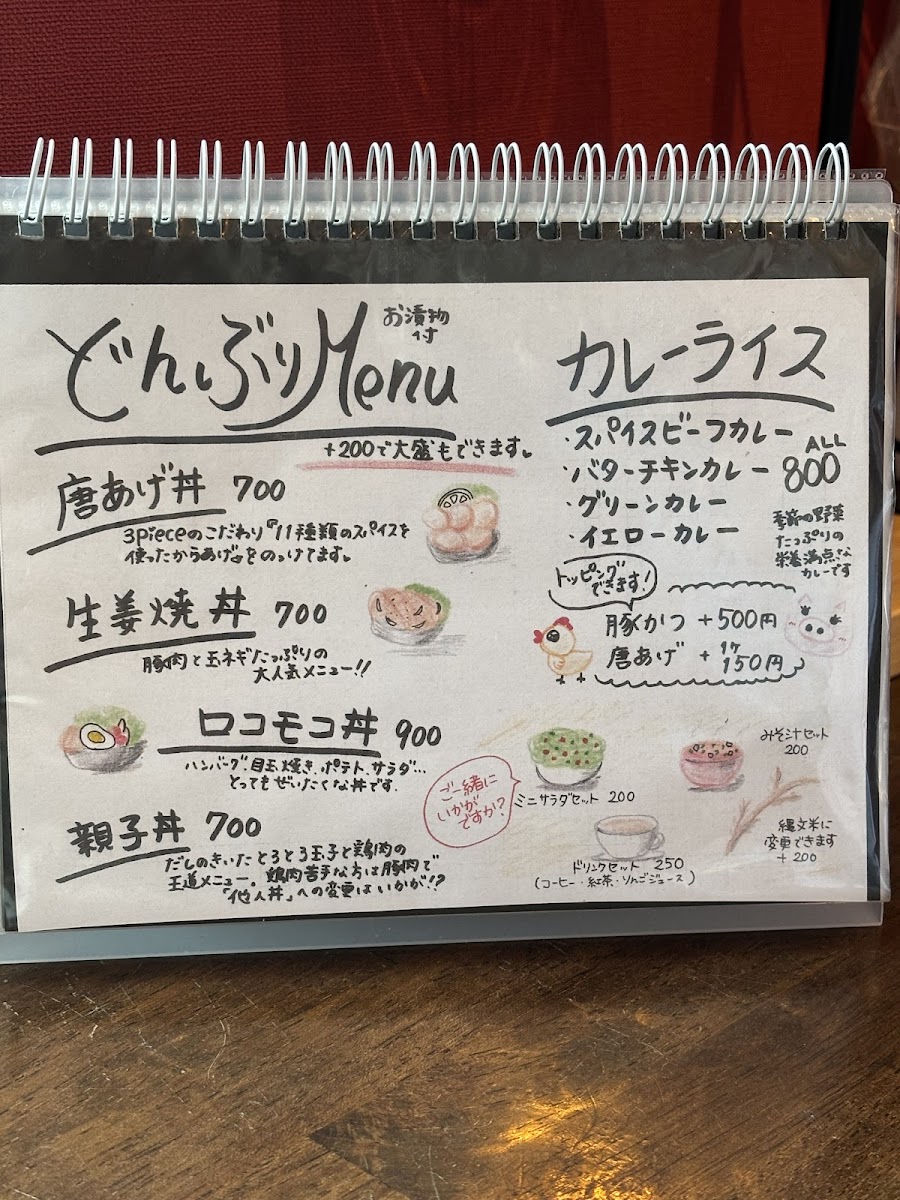 どんぶりMenu
お漬物
付
+200で大盛もできます。
唐あげ丼 700
3pieceのこだわり『11種類のスパイスを
使ったからあげ』をのっけてます。
生姜焼丼 700
豚肉と玉ネギたっぷりの
大人気メニュー!!
ロコモコ丼 900
ハンバーグ、目玉焼き、ポテト、サラダ…
とってもぜいたくな丼です.
親子丼 700
だしのきいたとろとろ玉子と鶏肉の
王道メニュー。鶏肉苦手な方は豚肉で
「他人丼」への変更はいかが!?
カレーライス
・スパイスビーフカレー
・バターチキンカレー
・グリーンカレー
・イエローカレー
ALL
800
季節の野菜
たっぷりの
栄養満点な
カレーです
トッピング
できます!
豚かつ +500円
唐あげ + 1ケ 150円
ご一緒に
いかが
ですか?
ミニサラダセット 200
みそ汁セット
200
ドリンクセット 250
(コーヒー・紅茶・りんごジュース)
縄文米に
変更できます
+200